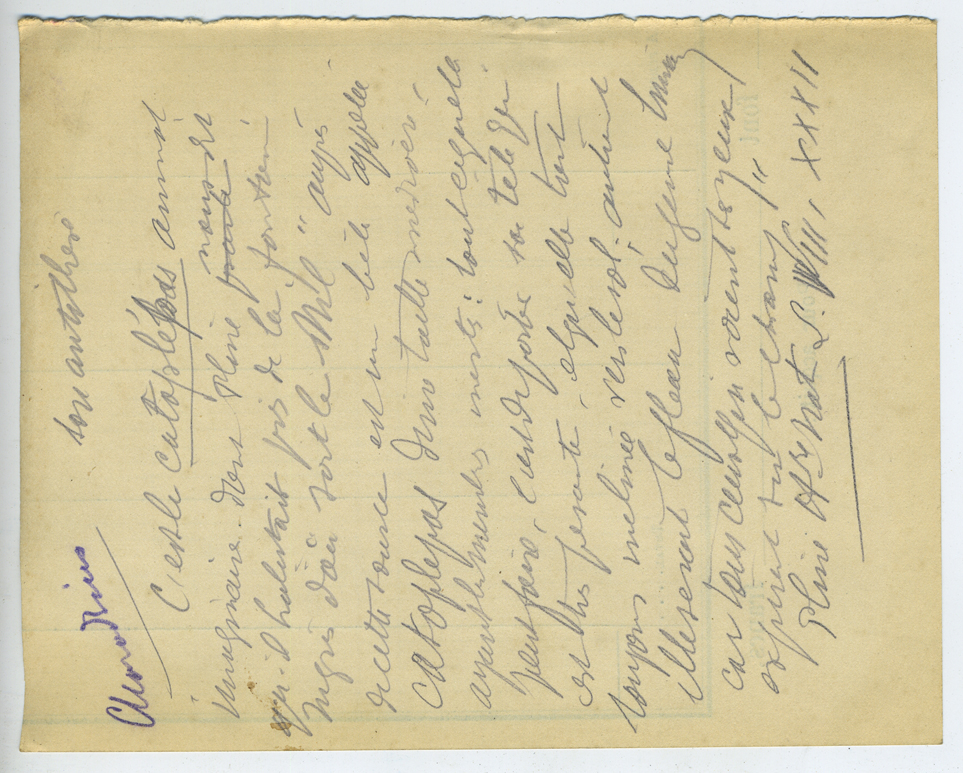 son anthère
C'est le catoplépas animal
imaginaire dont Pline nous dit
qu'il habitait près de la fontaine
Nigris d'où sort le Nil " auprès
de cette source est une bête appelée
catoplepas d'une taille médiocre
ayant les membres inertes : tout ce qu'elle
peut faire, c'est de porter sa tête qui
est très pesante, et qu'elle tient
toujours inclinée vers le sol. autrement
elle serait le fléau du genre humain
car tous ceux qui voient ses yeux
expirent sur le champ "
Pline Hre Nat L. VIII, XXXII